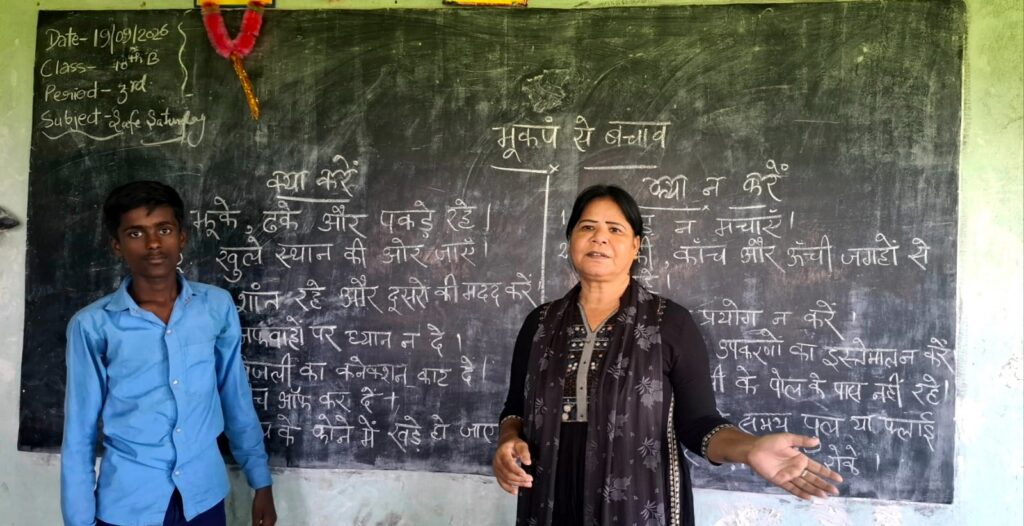 Date- 19/09/2026
Class- 10th B
Period- 3rd
Subject- Safe Saturday
भूकपं से बचाव
क्या करें
झूके, ढके और पकड़े रहे।
खुले स्थान की ओर जाएँ।
शांन रहे और दूसरो की मदद करें
पर ध्यान न दे।
का कनेक्शन काट दे।
ऑफ कर दें
के कोने में खड़े हो जाए
क्या न करें
न मचाएँ।
काँच और ऊँची जगहों से
प्रयोग न करें।
उपकरणो का इस्तेमाल न करें
के पोल के पास नहीं रहे।
समय पुल या फ्लाई
रोके।